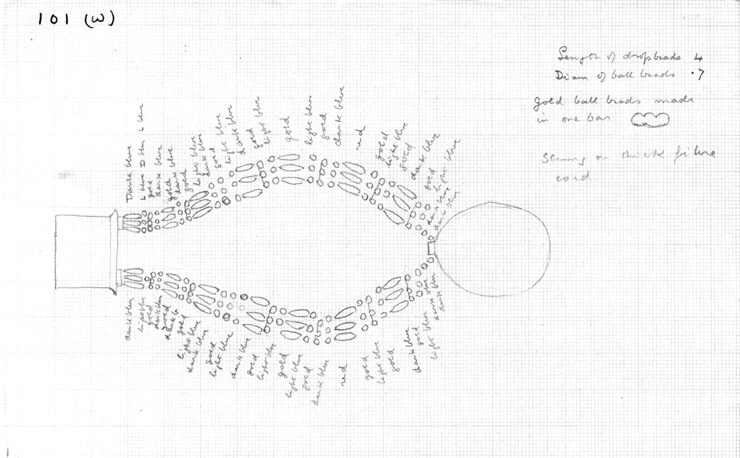 101 (W)
Length of drop beads 4
Diam of ball beads .7
gold ball beads made
in one bar
on thick fibre
cord
Dark blue
L blue
D blue
L blue
gold
dark blue
gold
dark blue
gold
light blue
dark blue
gold
light blue
dark blue
gold
light blue
gold
light blue
gold
dark blue
red
gold
light blue
gold
dark blue
gold
light blue
dark blue
dark blue
dark blue
light blue
gold
dark blue
gold
dark b
gold
light blue
dark blue
gold
light blue
dark blue
gold
light blue
gold
light blue
gold
dark blue
red
gold
light blue
gold
dark blue
gold
light blue
dark blue
light blue
dark blue